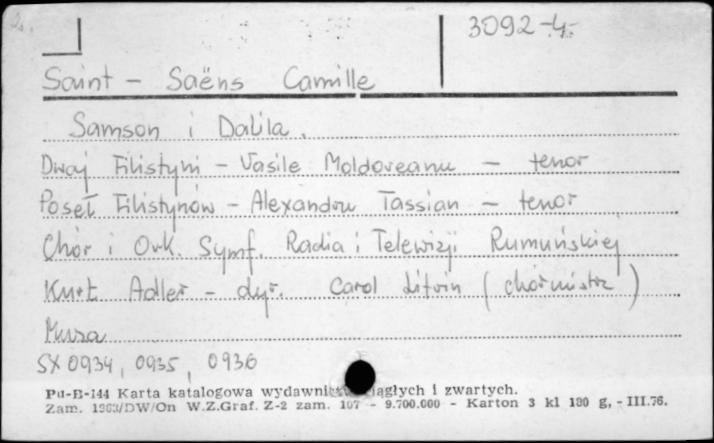 3092-4-
Saint - Saëns Camille
Samson i Dalila.
Dwaj Filistyni - Vasile Moldoveanu - tenor
Poseł Filistynów - Alexandru Tassian - tenor
Chór i Ork. Symf. Radia i Telewizji Rumuńskiej
Kurt Adler - dyr. Carol Litvin (chórmistrz)
Muza
SX 0934, 0935, 0936
Pu-B-144 Karta katalogowa i zwartych.
Zam. W.Z.Graf. Z-2 zam. 107 - 9.700.000 - Karton 3 kl 180 g, - III.76.